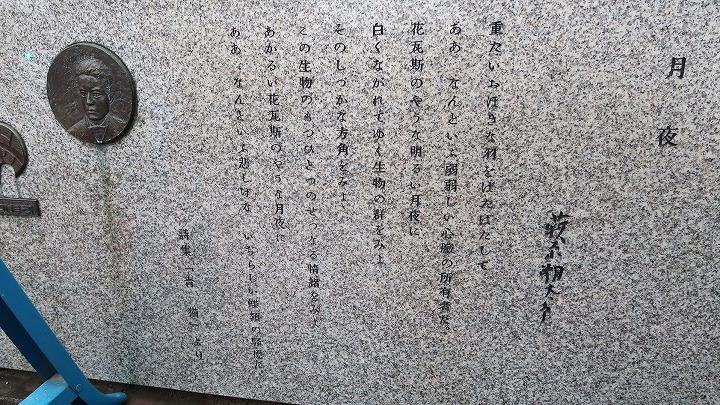 月夜
萩原朔太郎
重たいおほきな羽をばたばたして
ああ なんといふ弱弱しい心臓の所有者だ
花瓦斯のやうな明るい月夜に
白くながれてゆく生物の群をみよ
そのしづかな方角をみよ
この生物のもつひとつのせつなる情緒をみよ
あかるい花瓦斯のやうな月夜に
ああ なんといふ悲しげな いぢらしい蝶類の騒擾だ
詩集「青猫」より